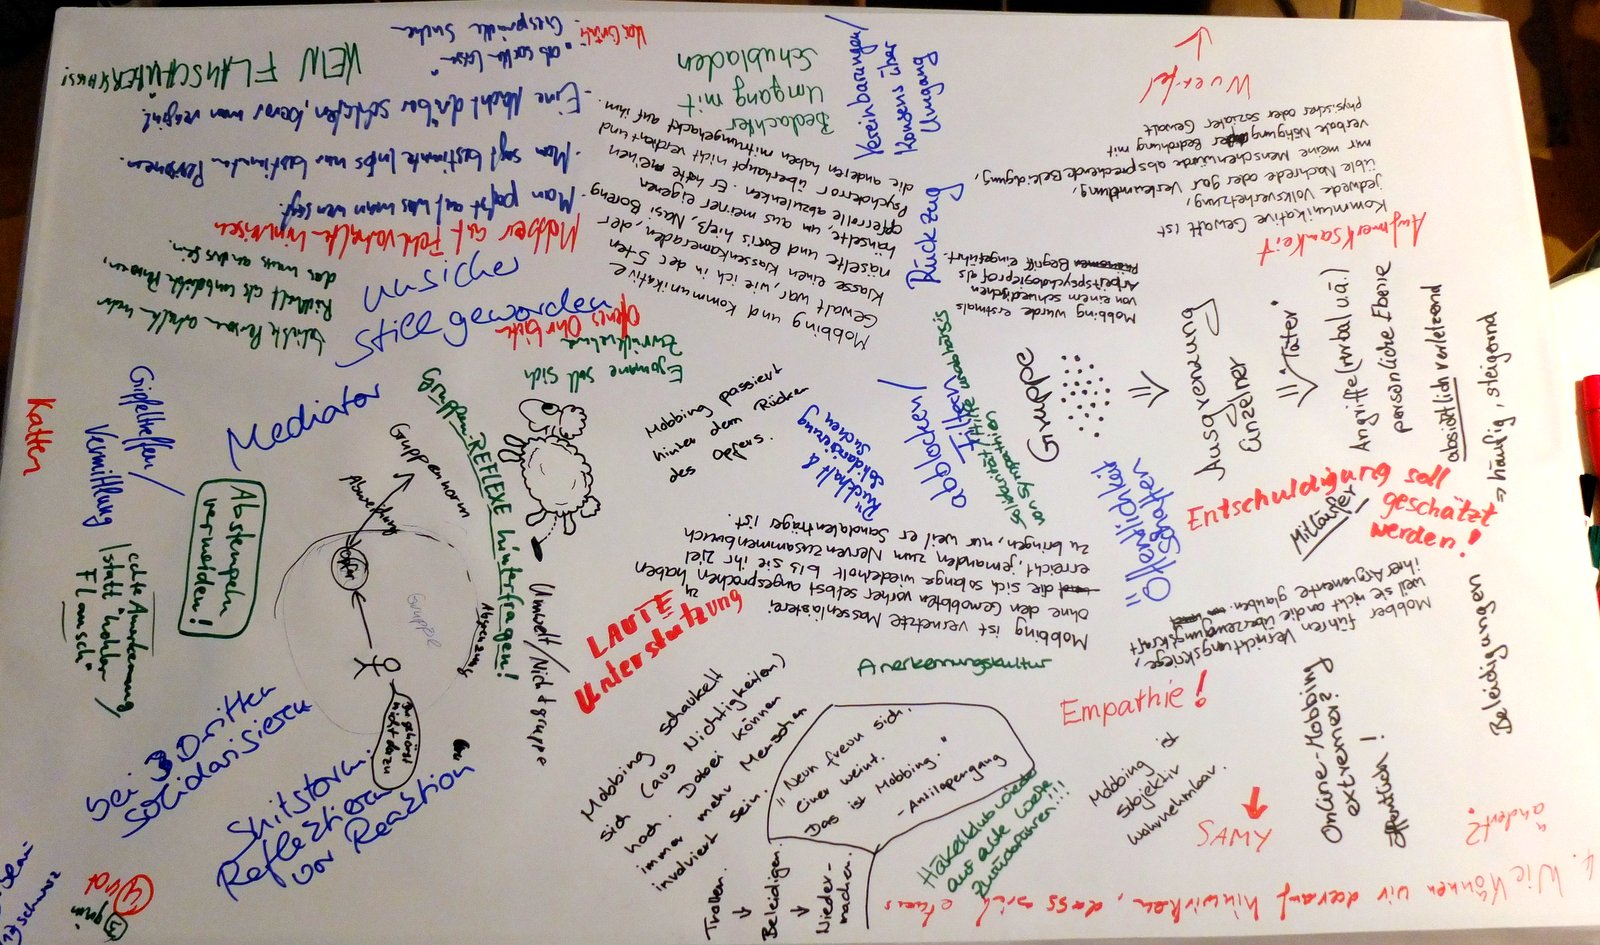 Kor(rektiv):
Gespräche suche
KEIN FLAUSCHÜBERSCHUSS!
- Eine Nacht drüber schlafen, bevor man reagiert.
- Man sagt bestimmte Infos nur bestimmten Personen.
- Man passt auf was man wem sagt.
Mobber auf Fehlverhalten hinweisen
unsicher
still geworden
Offenes Ohr
Egomane soll sich
zurücknehmen
Bedachter
Umgang mit
Schubladen
Vereinbarungen/
Konsens über
Umgang
Rückzug
Mobbing und kommunikative
Gewalt war, wie ich in der 5ten
Klasse einen Klassenkameraden, der
näselte und Boris hieß, Nasi Boreng
hänselte, um aus meiner eigenen
Opferrolle abzulenken. Er hatte meinen
Psychoterror überhaupt nicht verdient und
die anderen haben mitrumgehackt auf ihm.
Wuerfel
Aufmerksamkeit
Kommunikative Gewalt ist
jedwede Volksverhetzung,
üble Nachrede oder gar Verleumdung,
mir meine Menschenwürde absprechende Beleidigung,
verbale Nötigung oder Bedrohung mit
physischer oder sozialer Gewalt
Mobbing wurde erstmals
von einem schwedischen
Arbeitspsychologieprof als
Begriff eingeführt.
Gruppe
⇒
Ausgrenzung
Einzelner
⇒ "Täter"
Angriffe (verbal u.ä.)
persönliche Ebene
absichtlich verletzend
⇒ häufig, steigend
Beleidigungen
Katten
Gipfeltreffen/
Vermittlung
Mediator
Abstempeln
vermeiden!
echte Anerkennung
statt "hohler
Flausch"
Gruppen-REFLEXE hinterfragen!
Gruppennorm
Abweichung
Opfer
Gruppe
Abgrenzung
Du gehörst
nicht dazu
Umwelt/Nichtgruppe
Mobbing passiert
hinter dem Rücken
des Opfers.
Rückhalt &
Solidarisierung
suchen
abblocken/
Filtern
Solidarität/Hilfe unabhängig
von Sympathien
Öffentlichkeit
schaffen
Entschuldigung soll
geschätzt
werden!
Mitläufer
Mobber führen Vernichtungskriege,
weil sie nicht an die Überzeugungskraft
ihrer Argumente glauben.
Mobbing ist vernetzte Massenlästerei
ohne den Gemobbten vorher selbst angesprochen zu haben
die sich solange wiederholt bis sie ihr Ziel
erreicht, jemanden zum Nervenzusammenbruch
zu bringen, nur weil er Sandalenträger ist.
LAUTE
Unterstützung
Anerkennungskultur
Empathie!
bei 3 Dritten
solidarisieren
Shitstorm:
Reflektieren
vor Reaktion
Mobbing schaukelt
sich (aus Nichtigkeiten)
hoch. Dabei können
immer mehr Menschen
involviert sein.
"Neun freun sich.
Einer weint.
Das ist Mobbing."
- Antilopengang
Trollen.
↓
Beleidigen.
↓
Nieder-
machen.
Häkelklub wieder
auf alte Werte
zurückführen!!!
Mobbing ist
subjektiv
wahrnehmbar.
Online-Mobbing
extremer?
öffentlich!
4. Wie können wir darauf hinwirken, dass sich etwas
ändert?
rot
grün
schwarz